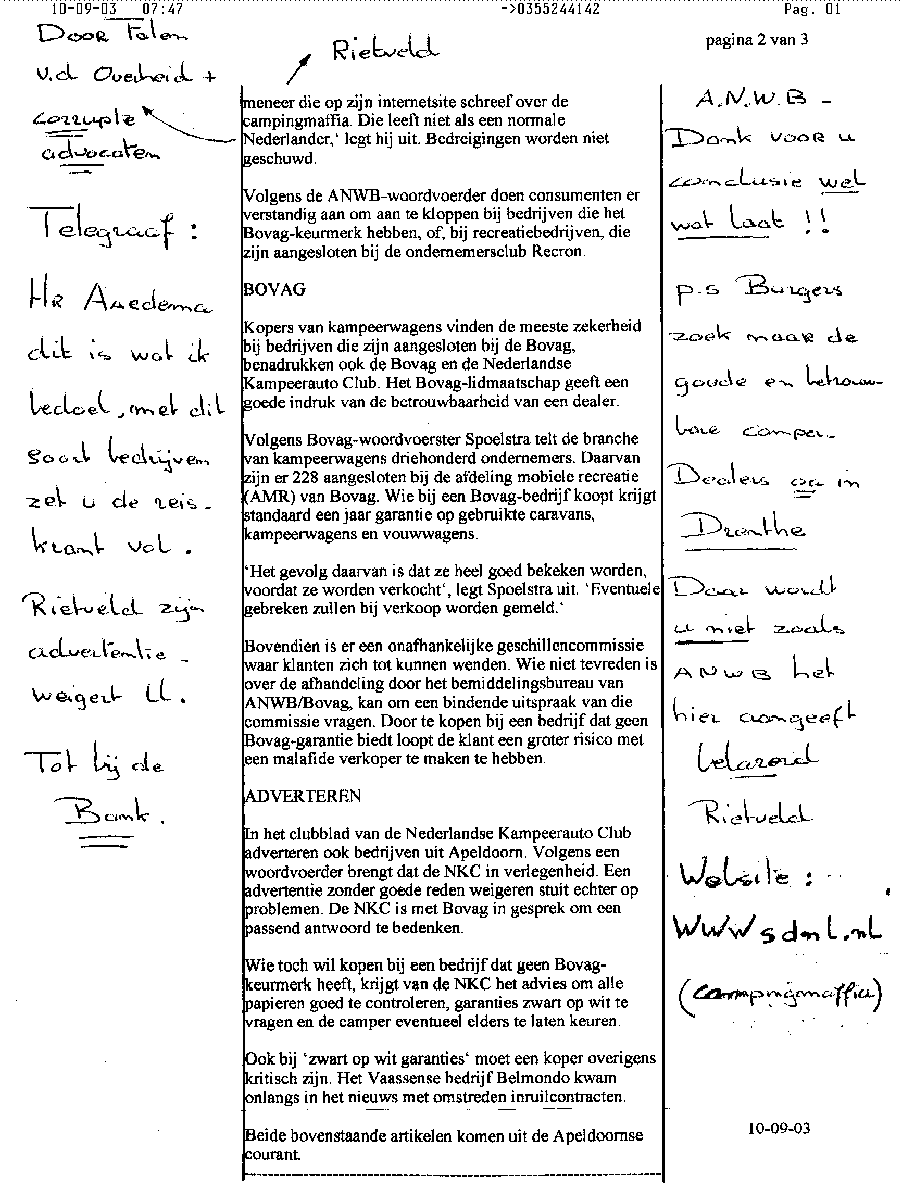 10-09-03 07:47 ->0355244142 Pag. 01
Door Falen
v.d Overheid +
corrupte
advocaten
Telegraaf :
Hr Anedema
dit is wat ik
bedoel, met dit
soort bedrijven
zet u de reis-
krant vol.
Rietveld zijn
advertentie
weigert U.
Tot bij de
Bank.
Rietveld
meneer die op zijn internetsite schreef over de
campingmaffia. Die leeft niet als een normale
Nederlander,‘ legt hij uit. Bedreigingen worden niet
geschuwd.
Volgens de ANWB-woordvoerder doen consumenten er
verstandig aan om aan te kloppen bij bedrijven die het
Bovag-keurmerk hebben, of, bij recreatiebedrijven, die
zijn aangesloten bij de ondernemersclub Recron.
BOVAG
Kopers van kampeerwagens vinden de meeste zekerheid
bij bedrijven die zijn aangesloten bij de Bovag,
benadrukken ook de Bovag en de Nederlandse
Kampeerauto Club. Het Bovag-lidmaatschap geeft een
goede indruk van de betrouwbaarheid van een dealer.
Volgens Bovag-woordvoerster Spoelstra telt de branche
van kampeerwagens driehonderd ondernemers. Daarvan
zijn er 228 aangesloten bij de afdeling mobiele recreatie
(AMR) van Bovag. Wie bij een Bovag-bedrijf koopt krijgt
standaard een jaar garantie op gebruikte caravans,
kampeerwagens en vouwwagens.
‘Het gevolg daarvan is dat ze heel goed bekeken worden,
voordat ze worden verkocht‘, legt Spoelstra uit. ‘Eventuele
gebreken zullen bij verkoop worden gemeld.‘
Bovendien is er een onafhankelijke geschillencommissie
waar klanten zich tot kunnen wenden. Wie niet tevreden is
over de afhandeling door het bemiddelingsbureau van
ANWB/Bovag, kan om een bindende uitspraak van die
commissie vragen. Door te kopen bij een bedrijf dat geen
Bovag-garantie biedt loopt de klant een groter risico met
een malafide verkoper te maken te hebben.
ADVERTEREN
In het clubblad van de Nederlandse Kampeerauto Club
adverteren ook bedrijven uit Apeldoorn. Volgens een
woordvoerder brengt dat de NKC in verlegenheid. Een
advertentie zonder goede reden weigeren stuit echter op
problemen. De NKC is met Bovag in gesprek om een
passend antwoord te bedenken.
Wie toch wil kopen bij een bedrijf dat geen Bovag-
keurmerk heeft, krijgt van de NKC het advies om alle
papieren goed te controleren, garanties zwart op wit te
vragen en de camper eventueel elders te laten keuren.
Ook bij ‘zwart op wit garanties‘ moet een koper overigens
kritisch zijn. Het Vaassense bedrijf Belmondo kwam
onlangs in het nieuws met omstreden inruilcontracten.
Beide bovenstaande artikelen komen uit de Apeldoornse
courant.
pagina 2 van 3
A.N.W.B -
Dank voor u
conclusie wel
wat laat !!
p.s Burgers
zoek maar de
goude en betrouw-
bare camper-
Dealers op in
Drenthe
Daar wordt
u niet zoals
ANWB het
hier aangeeft
belazerd
Rietveld
Website :
WWW sdnl.nl
(campingmaffia)
10-09-03